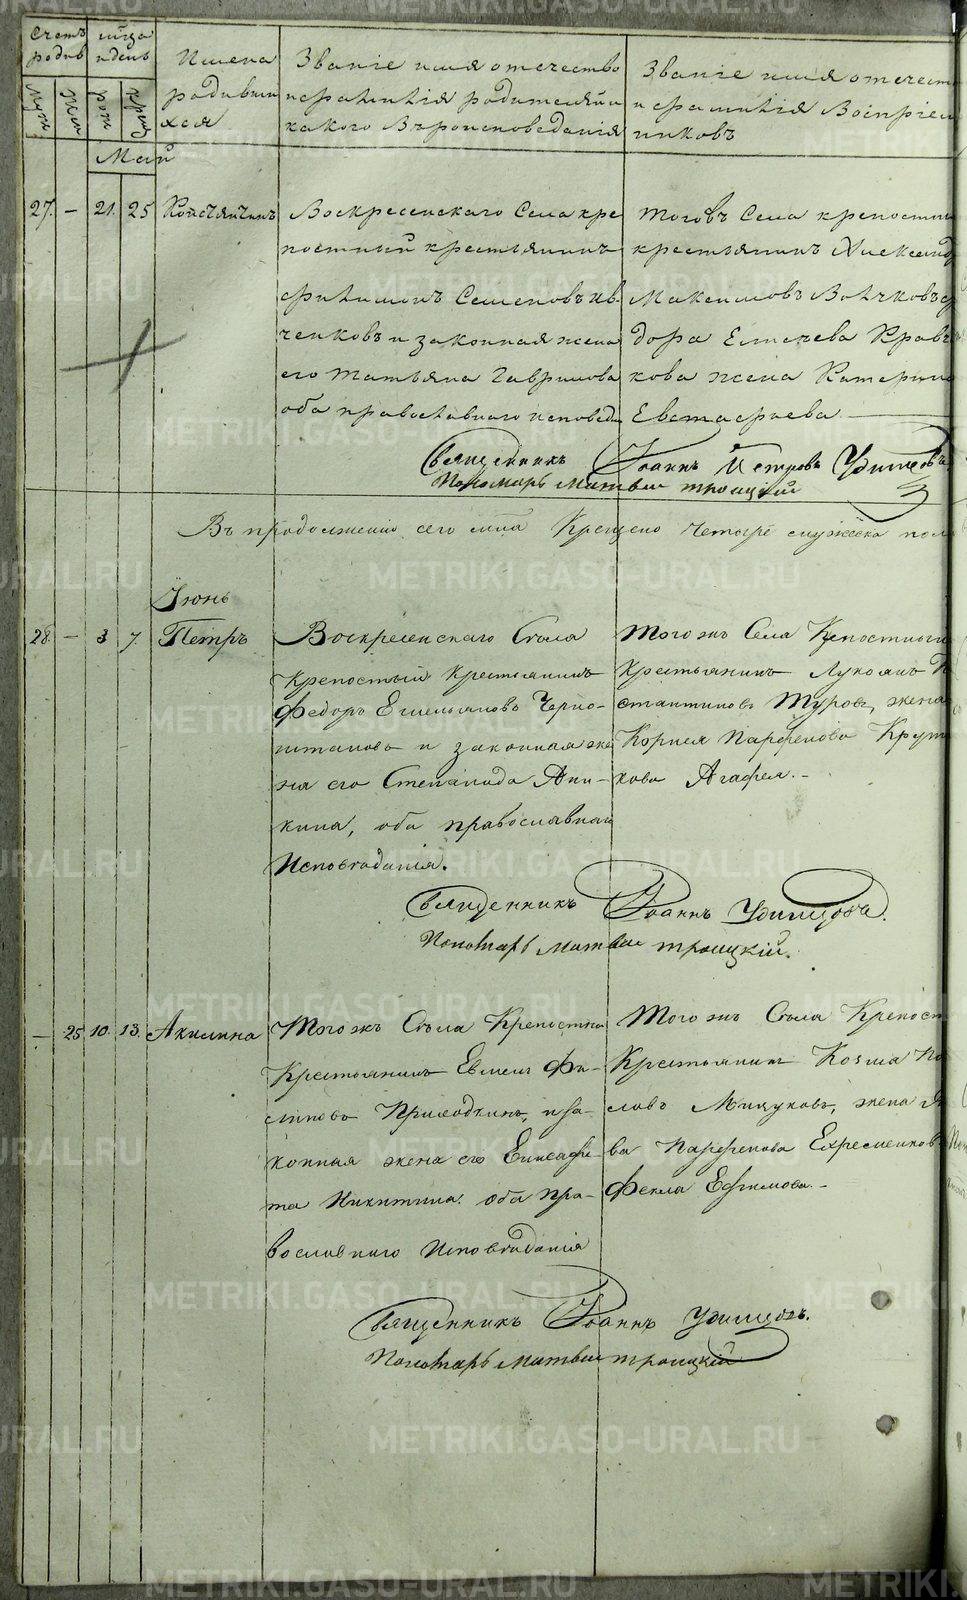 Счетъ родив
мѣца и день
Имена родивши хся
Званіе имя отечество и фамилія родителей и какого вѣроисповеданія
Званіе имя отечест и фамилія Воспріем никовъ
Май
27. — 21. 25 Констянтинъ
Воскресенскаго Села кре
постный крестьянинъ
филимонъ Семеновъ Ив
ченковъ и законная жена
его Татьяна Гаврилова
оба православнаго исповеда
тогожъ Села крепостны
крестьянинъ Александ
Максимовъ Волчковъ
дора Елисѣева Кравч
кова жена Катерина
Евстафьева
Священникъ Іоаннъ Петровъ Удинцовъ
Пономарь Матвѣи троицкій
Въ продолженіи сего мца Крещено Четыре мужеска пола
Іюнь
28. — 3 7. Петръ
Воскресенскаго Села
Крепостый Крестьянинъ
Федоръ Емельяновъ Черно-
штановъ и законная же
на его Степанида Ани-
кина, оба православнаго
Исповѣданія.
Того жъ Села Крепостнои
Крестьянинъ Лукоянъ К
стантиновъ Туровъ, жена
Корнея Парфенова Крут
кова Агафея. -
Священникъ Іоаннъ Удинцовъ.
Пономарь Матвѣи троицкій.
— 25 10. 13. Акилина
Того жъ Села Крепостно
Крестьянинъ Евсеи Фи-
липовъ Приходкинъ, и за-
конная жена его Елисаве-
та Никитина. оба пра-
вославнаго Исповѣданія
Того жъ Села Крепост
Крестьянинъ Козма По
словъ Минуковъ, жена Я
ва Парфенова Ефременков
Фекла Ефимова. -
Священникъ Іоаннъ Удинцовъ.
Пономарь Матвѣи троицкій
METRIKI.GASO-URAL.RU